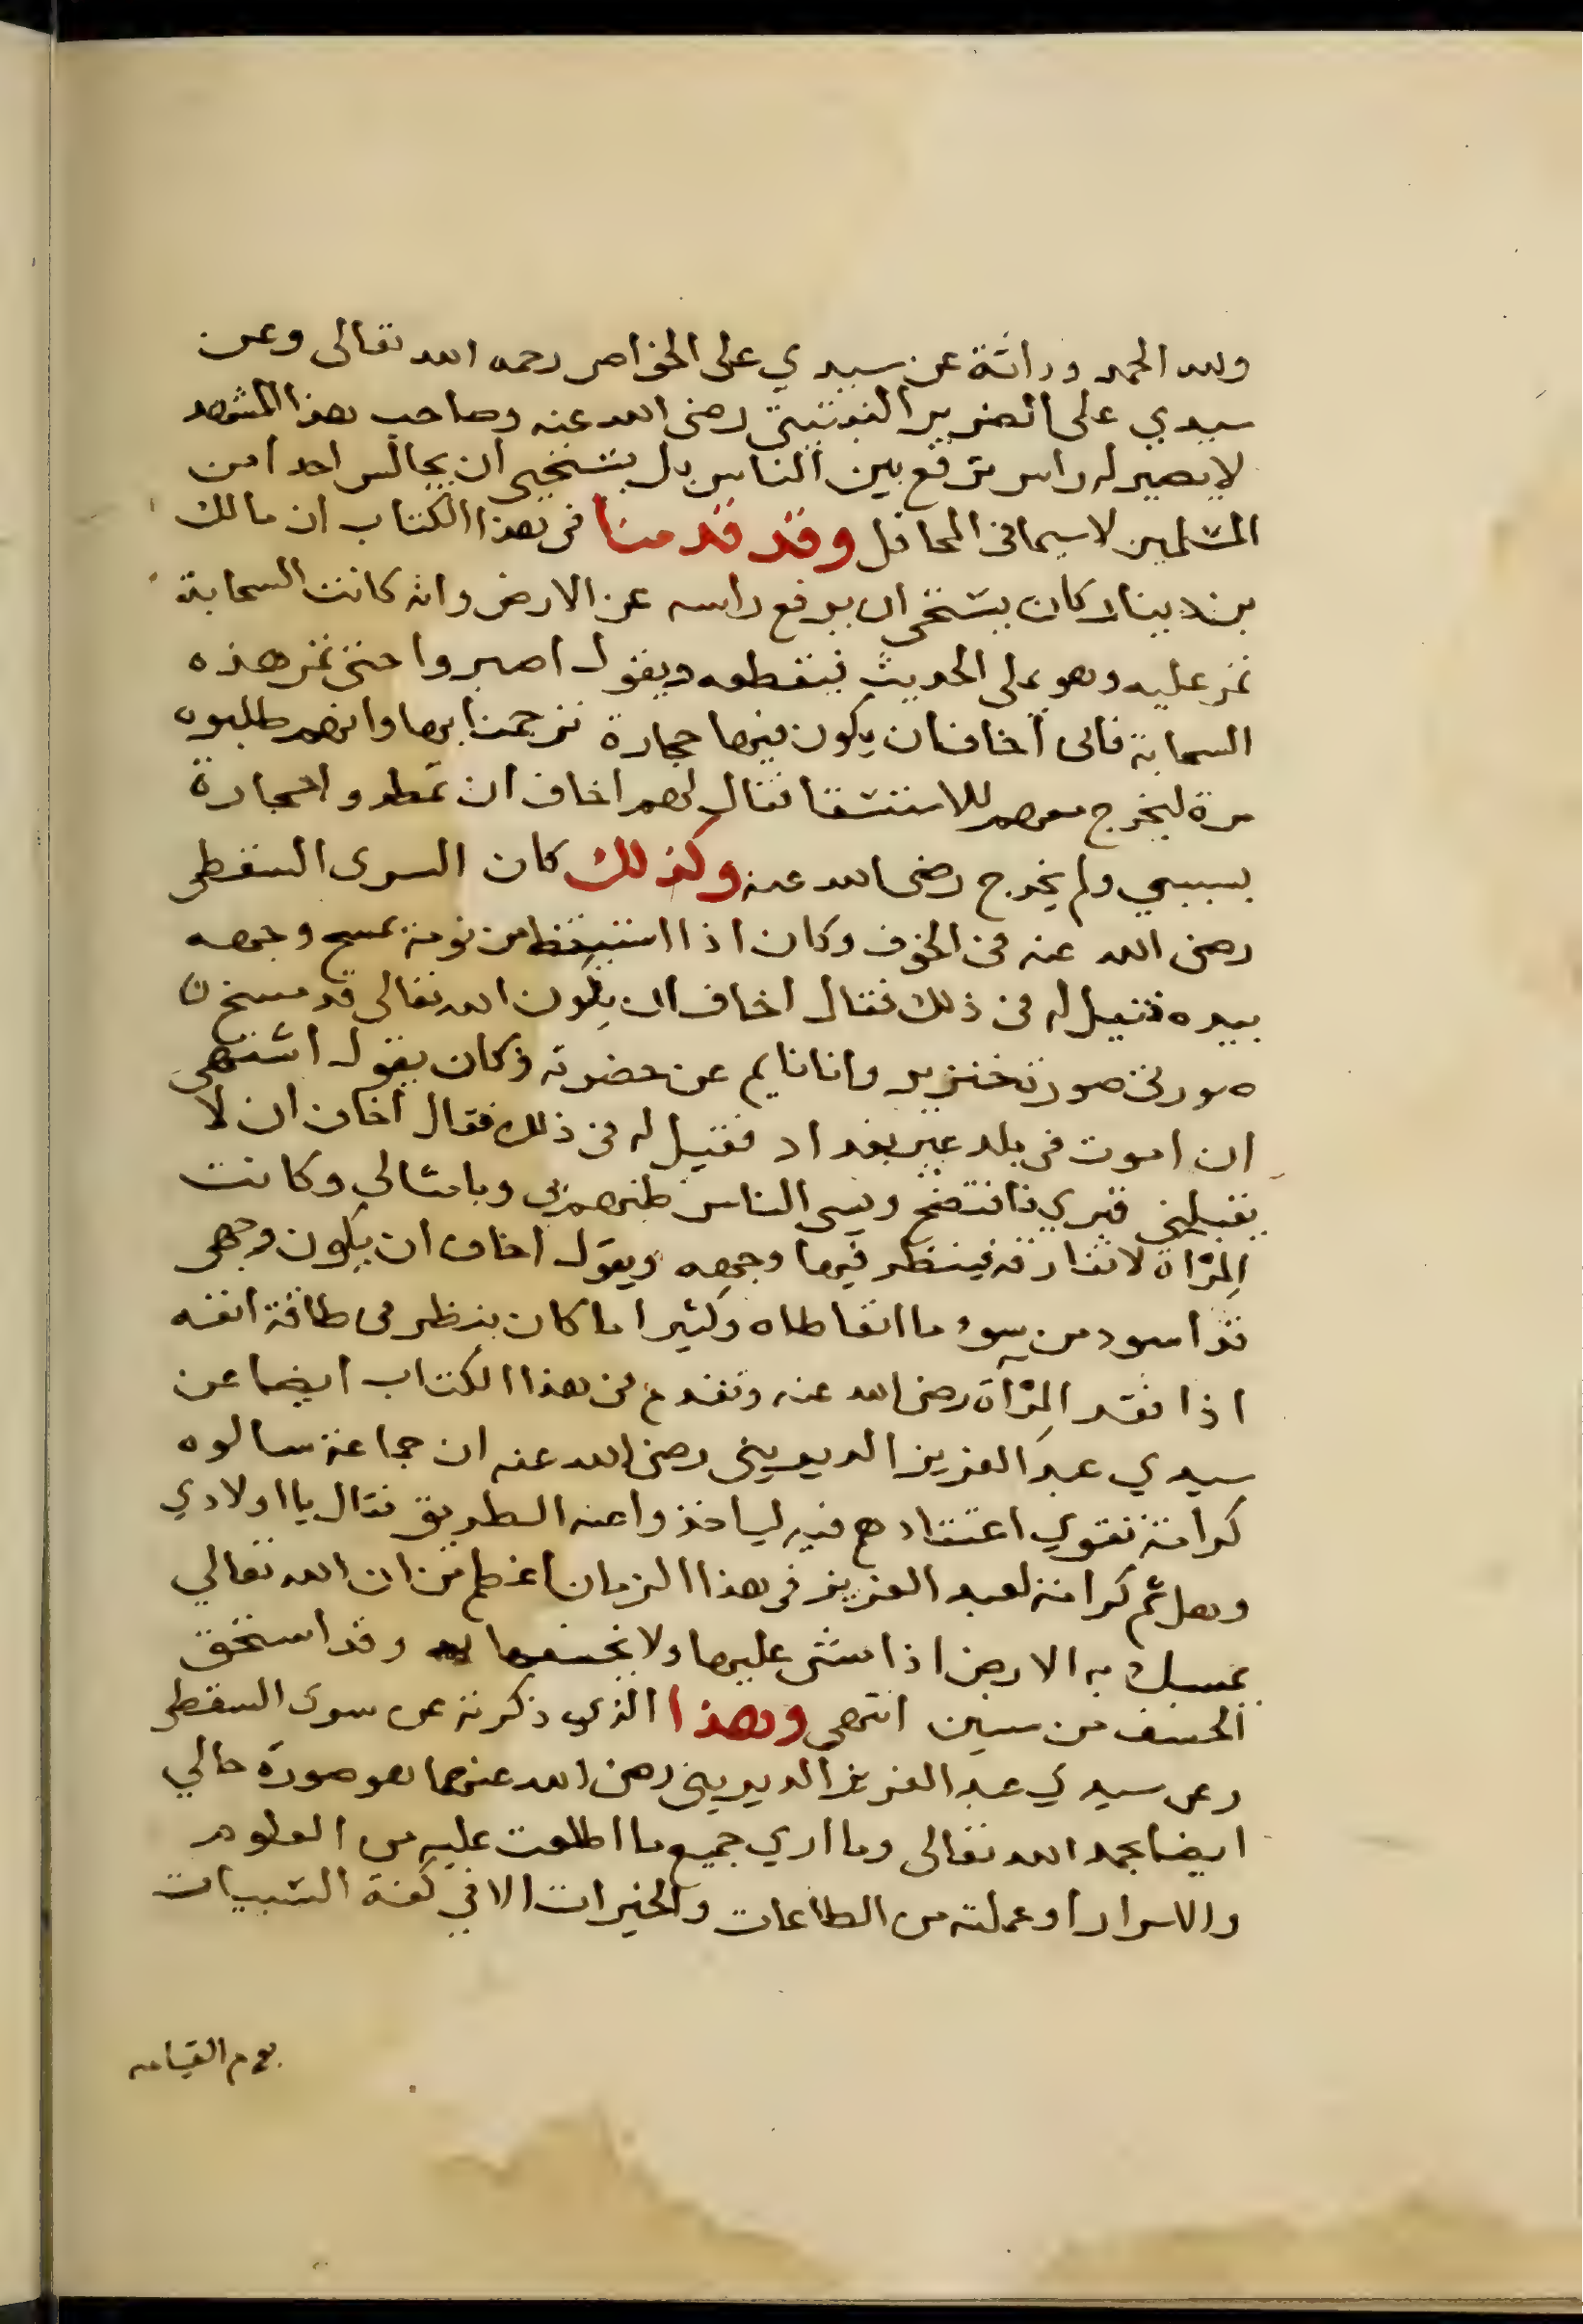 ولله الحمد وراثة عن سيدي على الخواص رحمه الله تعالى وعن
سيدي على الضرير النبتيتى رضى الله عنه وصاحب هذا المشهد
لا يصير له راس ترفع بين الناس بل يستحيى ان يجالس احدا من
المسلمين لاسيما فى المحافل وقد قدمنا فى هذا الكتاب ان مالك
بن دينار كان يستحى ان يرفع راسه عن الارض وانه كانت السحابة
تمر عليه وهو يملى الحديث فيقطعه ويقول اصبروا حتى تمر هذه
السحابة فانى اخاف ان يكون فيها حجارة ترجمنا بها وانهم طلبوه
مرة ليخرج معهم للاستسقا فقال لهم اخاف ان تمطروا حجارة
بسببي ولم يخرج رضى الله عنه وكذلك كان السرى السقطى
رضى الله عنه فى الخوف وكان اذا استيقظ من نومة يمسح وجهه
بيده فقيل له فى ذلك فقال اخاف ان يكون الله تعالى قد مسخ
صورتى صورة خنزير وانا نايم عن حضرته وكان يقول اشتهى
ان اموت فى بلد غير بغداد فقيل له فى ذلك فقال اخاف ان لا
يقبلنى قبري فافتضح ويسى الناس ظنهم بي وبامثالي وكانت
المِرْآة لا تفارقه فينظر فيها وجهه ويقول اخاف ان يكون وجهى
قد اسود من سوء ما اتعاطاه وكثيرا ما كان ينظر فى طاقة انفه
اذا فقد المِرْآة رضى الله عنه وتقدم فى هذا الكتاب ايضا عن
سيدي عبد العزيز الديرينى رضى الله عنه ان جماعة سالوه
كرامة تقوي اعتقادهم فيه لياخذوا عنه الطريق فقال يا اولادي
وهل ثم كرامة لعبد العزيز فى هذا الزمان اعظم من ان الله تعالي
يمسك به الارض اذا مشى عليها ولا يخسفها به وقد استحق
الخسف من سنين انتهى وهذا الذي ذكرته عن سرى السقطى
وعن سيدي عبد العزيز الديرينى رضى الله عنهما هو صورة حالي
ايضا بحمد الله تعالى وما اري جميع ما اطلعت عليه من العلوم
والاسرار او عملته من الطاعات والخيرات الا في كفة السيات
يوم القيامه